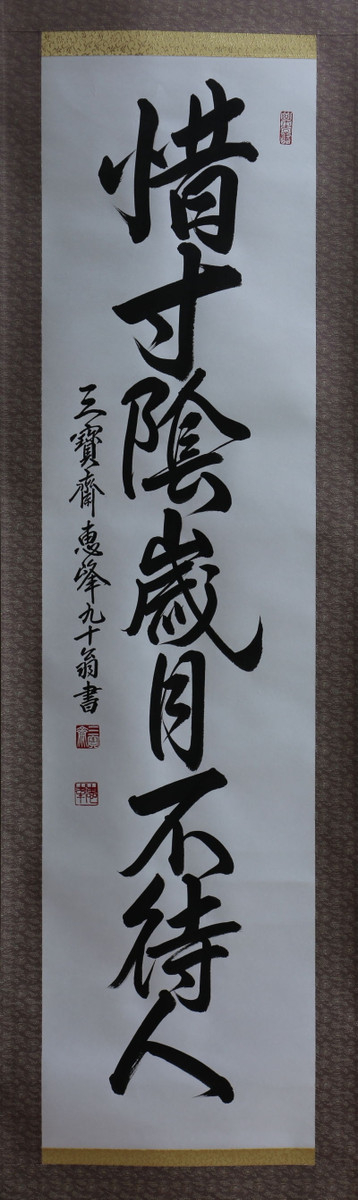 惜寸陰歳月不待人
三寶齋惠峰九十翁書